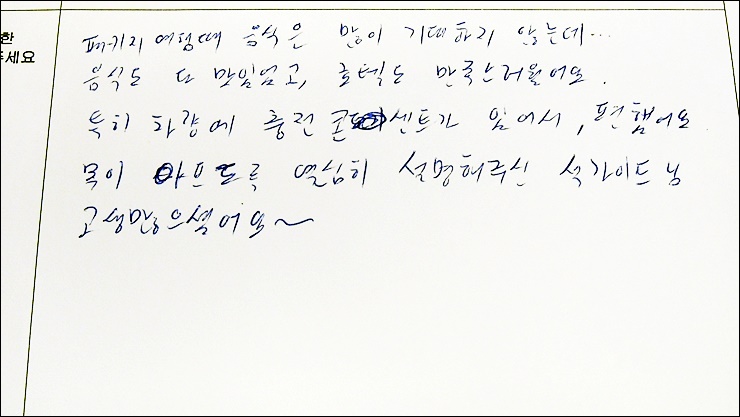 한
주세요
패키지 여행때 음식은 많이 기대하지 않는데...
음식도 다 맛있었고, 호텔도 만족스러웠어요.
특히 차량에 충전 콘센트가 있어서, 편했어요.
목이 아프도록 열심히 설명해주신 석가이드님
고생많으셨어요~